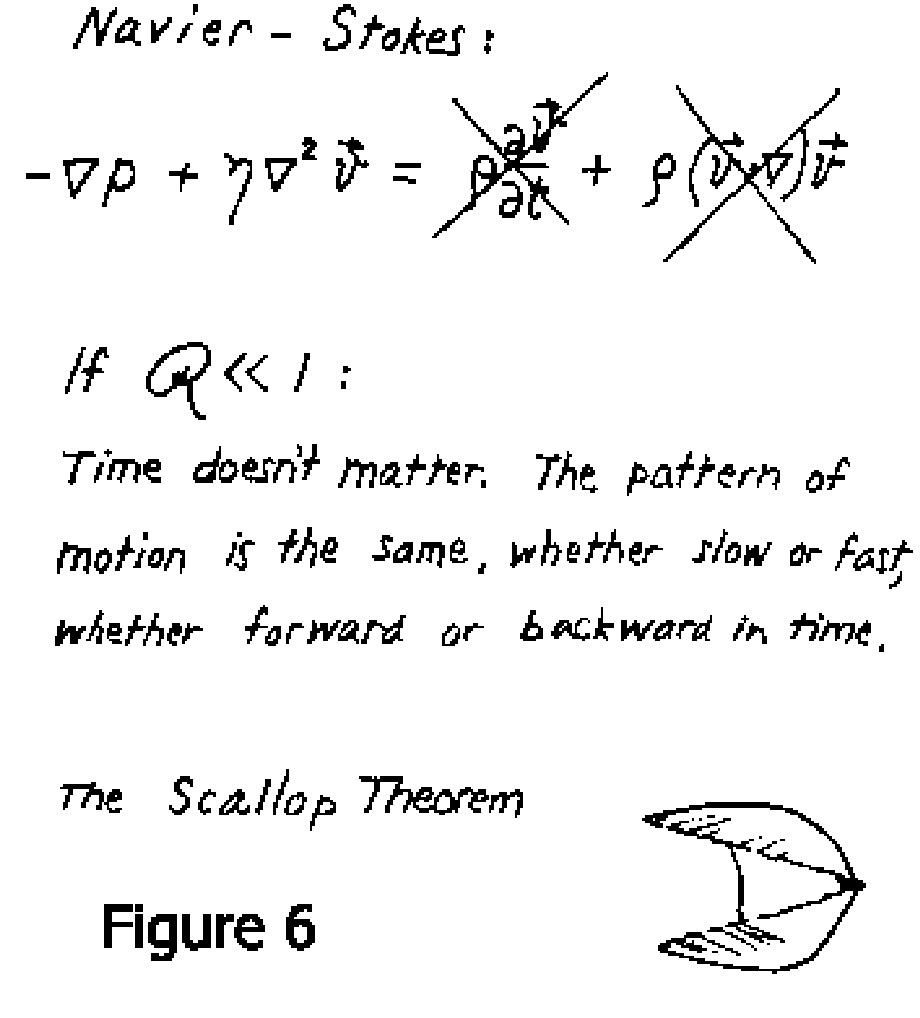 Navier - Stokes:
-∇p + η∇² v⃗ = ρ ∂v⃗/∂t + ρ(v⃗·∇)v⃗
If R << 1 :
Time doesn't matter. The pattern of
motion is the same, whether slow or fast,
whether forward or backward in time.
The Scallop Theorem
Figure 6